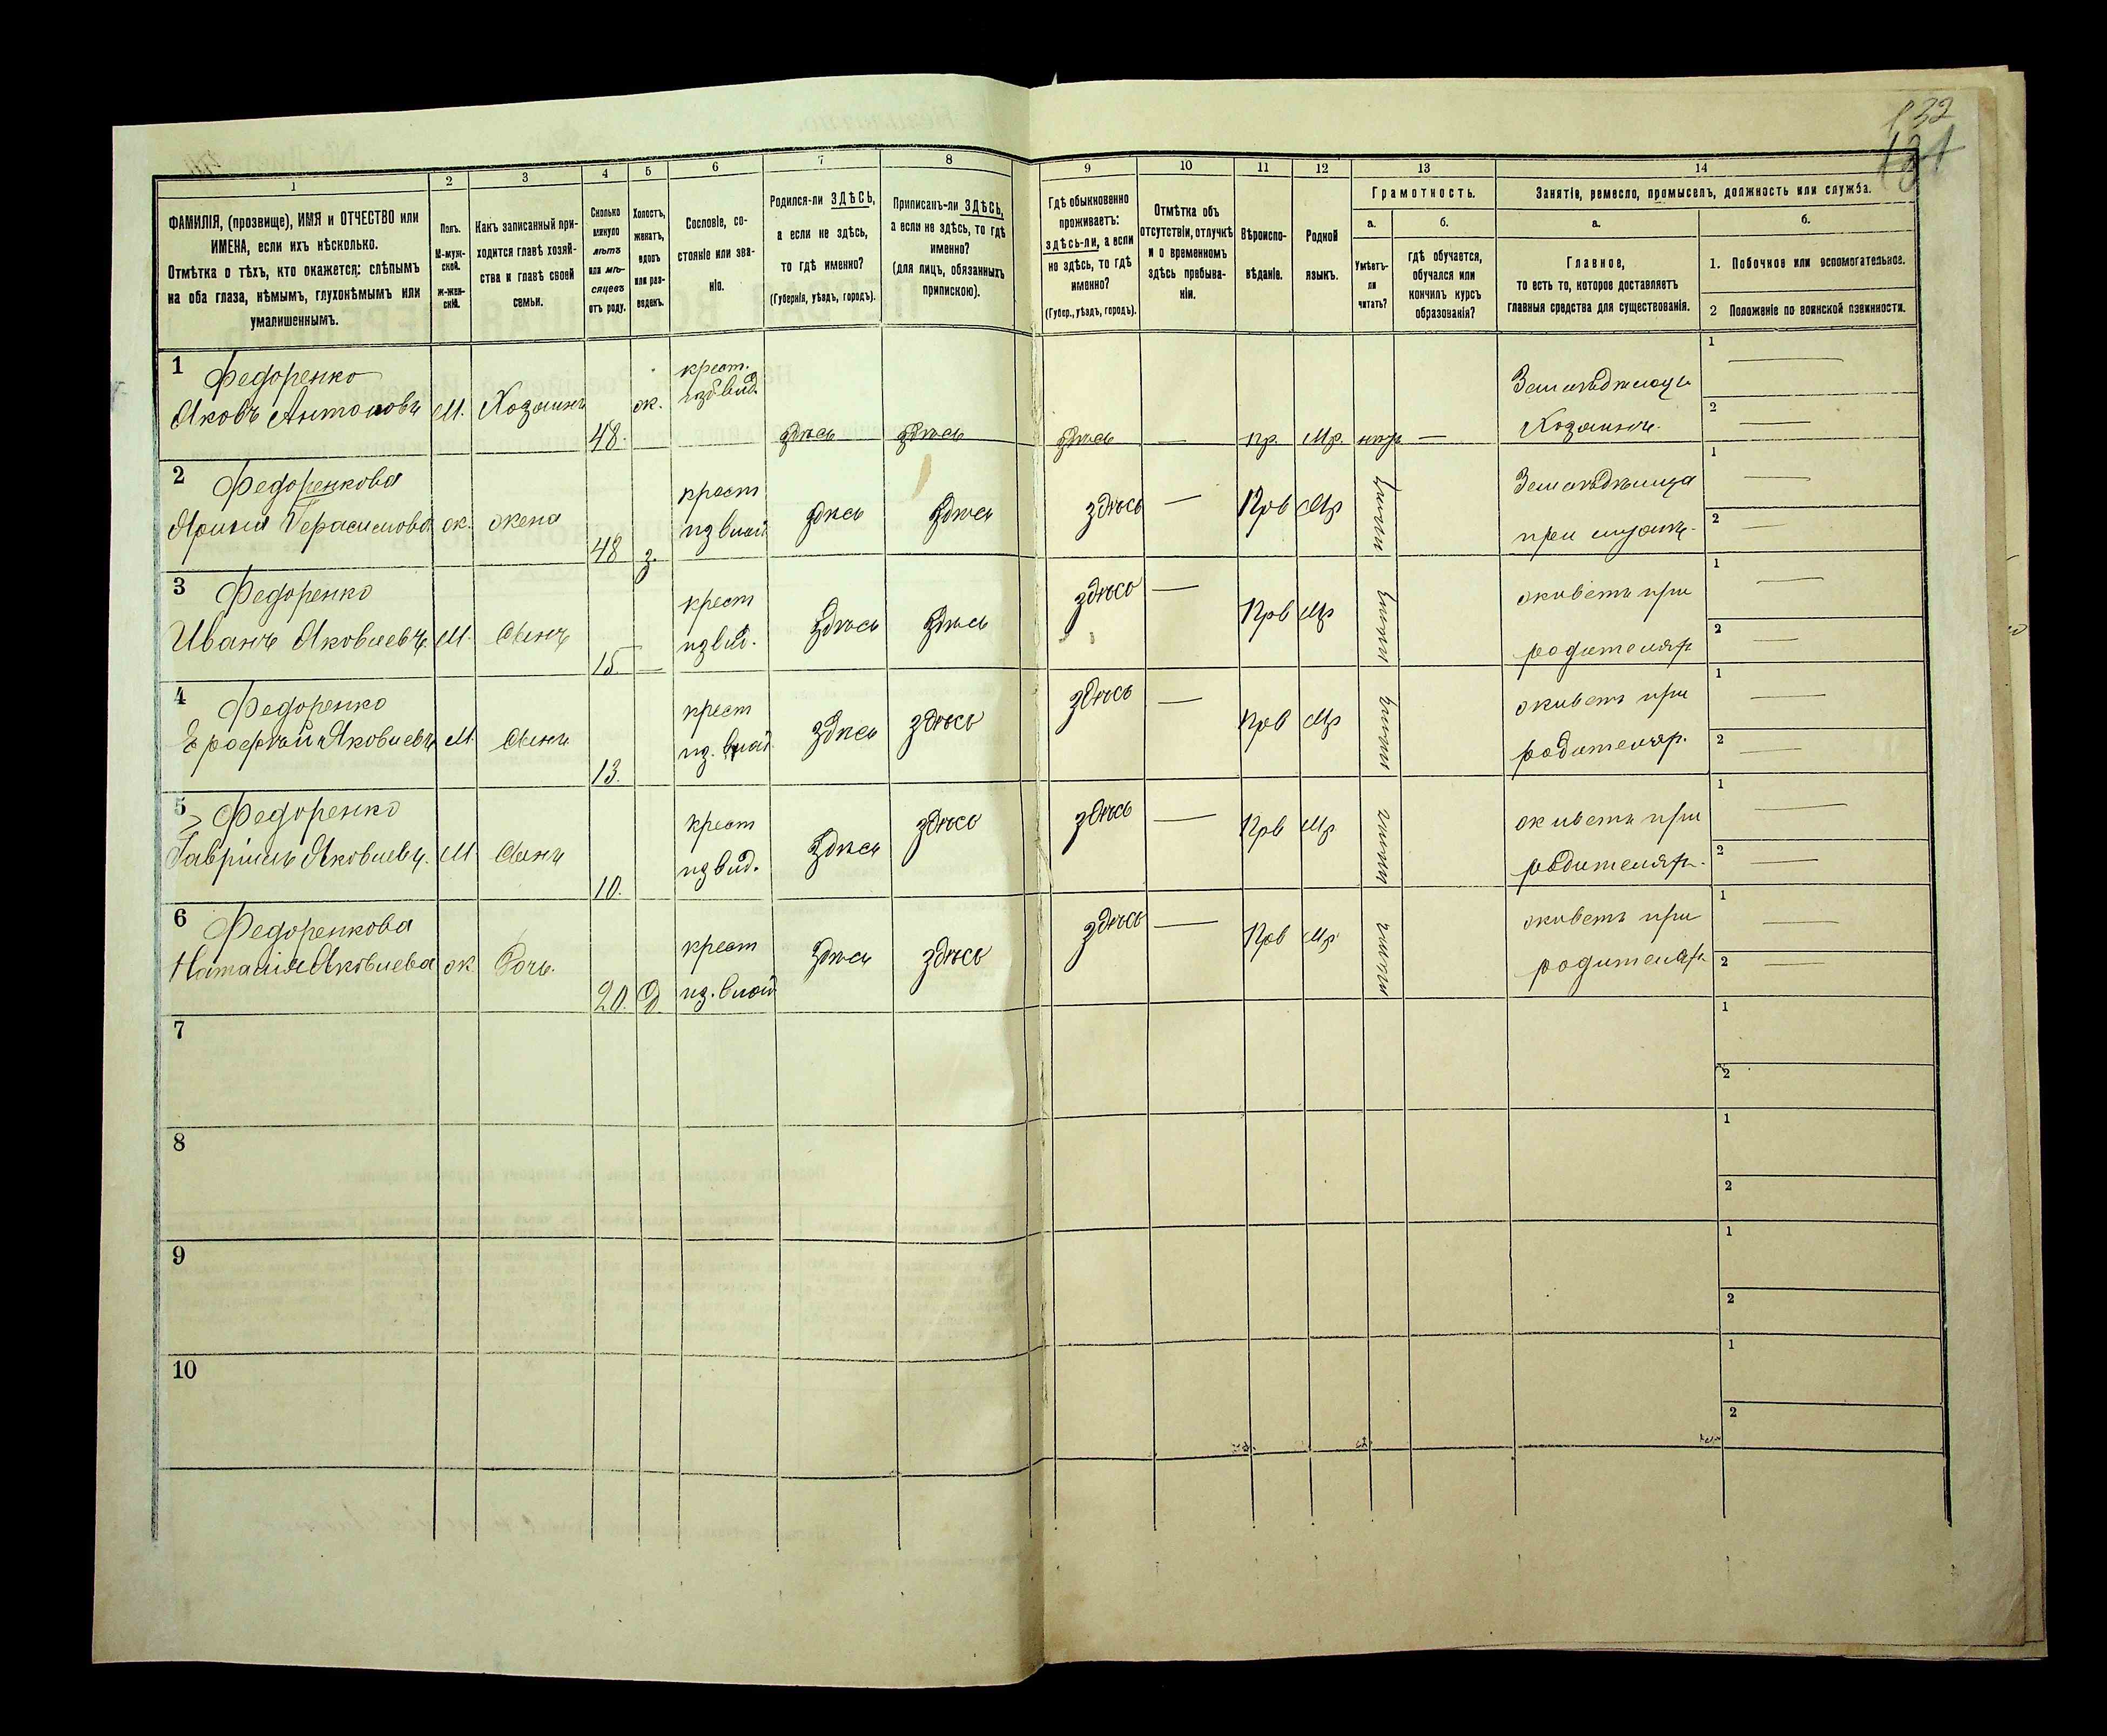 132
131
1
2
3
4
5
6
7
8
ФАМИЛІЯ, (прозвище), ИМЯ и ОТЧЕСТВО или
ИМЕНА, если ихъ нѣсколько.
Отмѣтка о тѣхъ, кто окажется: слѣпымъ
на оба глаза, нѣмымъ, глухонѣмымъ или
умалишеннымъ.
Полъ.
М-муж-
ской.
Ж-жен-
скій.
Какъ записанный при-
ходится главѣ хозяй-
ства и главѣ своей
семьи.
Сколько
минуло
лѣтъ
или мѣ-
сяцевъ
отъ роду.
Холостъ,
женатъ,
вдовъ
или раз-
веденъ.
Сословіе, со-
стояніе или зва-
ніе.
Родился-ли ЗДѢСЬ,
а если не здѣсь,
то гдѣ именно?
(Губернія, уѣздъ, городъ).
Приписанъ-ли ЗДѢСЬ,
а если не здѣсь, то гдѣ
именно?
(для лицъ, обязанныхъ
припискою).
9
10
11
12
13
14
Гдѣ обыкновенно
проживаетъ:
здѣсь-ли, а если
не здѣсь, то гдѣ
именно?
(Губер., уѣздъ, городъ).
Отмѣтка объ
отсутствіи, отлучкѣ
и о временномъ
здѣсь пребыва-
ніи.
Вѣроиспо-
вѣданіе.
Родной
языкъ.
Грамотность.
а.
б.
Умѣетъ-
ли
читать?
гдѣ обучается,
обучался или
кончилъ курсъ
образованія?
Занятіе, ремесло, промыселъ, должность или служба.
а.
б.
Главное,
то есть то, которое доставляетъ
главныя средства для существованія.
1. Побочное или вспомогательное.
2 Положеніе по воинской повинности.
1
Федоренко
Яковъ Антоновъ
М.
Хозяинъ
48.
ж.
крест.
здѣсь
здѣсь
здѣсь
—
пр.
Мр.
нѣтъ
—
Земледѣлецъ
Хозяинъ.
1 —
2 —
2
Федоренкова
Ярина Герасимова
ж.
жена
48
з.
крест
из влад
здѣсь
здѣсь
здѣсь
—
Прв
Мр
Земледѣлица
при мужѣ.
1 —
2 —
3
Федоренко
Иванъ Яковлевъ.
М.
Сынъ
15.
—
крест
из вл.
здѣсь
здѣсь
здѣсь
—
Прв
Мр
живетъ при
родителяхъ
1 —
2 —
4
Федоренко
Ерофѣй Яковлевъ
М.
Сынъ
13.
крест
из. влад
здѣсь
здѣсь
здѣсь
—
Прв
Мр
живетъ при
родителях.
1 —
2 —
5
Федоренко
Гавріилъ Яковлевъ.
М
Сынъ
10.
крест
из влд.
здѣсь
здѣсь
здѣсь
—
Прв
Мр
живетъ при
родителяхъ.
1 —
2 —
6
Федоренкова
Наталія Яковлева
ж
Дочь.
20.
Д.
крест
из. влад
здѣсь
здѣсь
здѣсь
—
Прв
Мр
живетъ при
родителяхъ
1 —
2 —
7
1
2
8
1
2
9
1
2
10
1
2